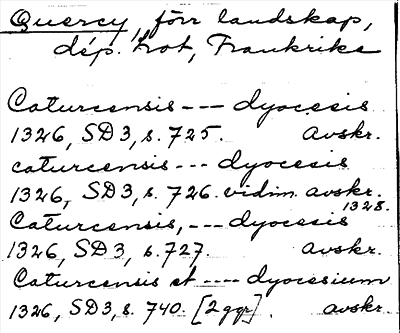 Quercy, förr landskap,
dép. Lot, Frankrike
Caturcensis --- dyocesis
1326, SD3, s. 725. Avskr.
caturcensis --- dyocesis
1326, SD3, s. 726. vidim. avskr.
1328.
Caturcensis, --- dyocesis
1326, SD3, s. 727. avskr.
Caturcensis et ---- dyocesium
1326, SD3, s. 740. [2 ggr]. avskr.